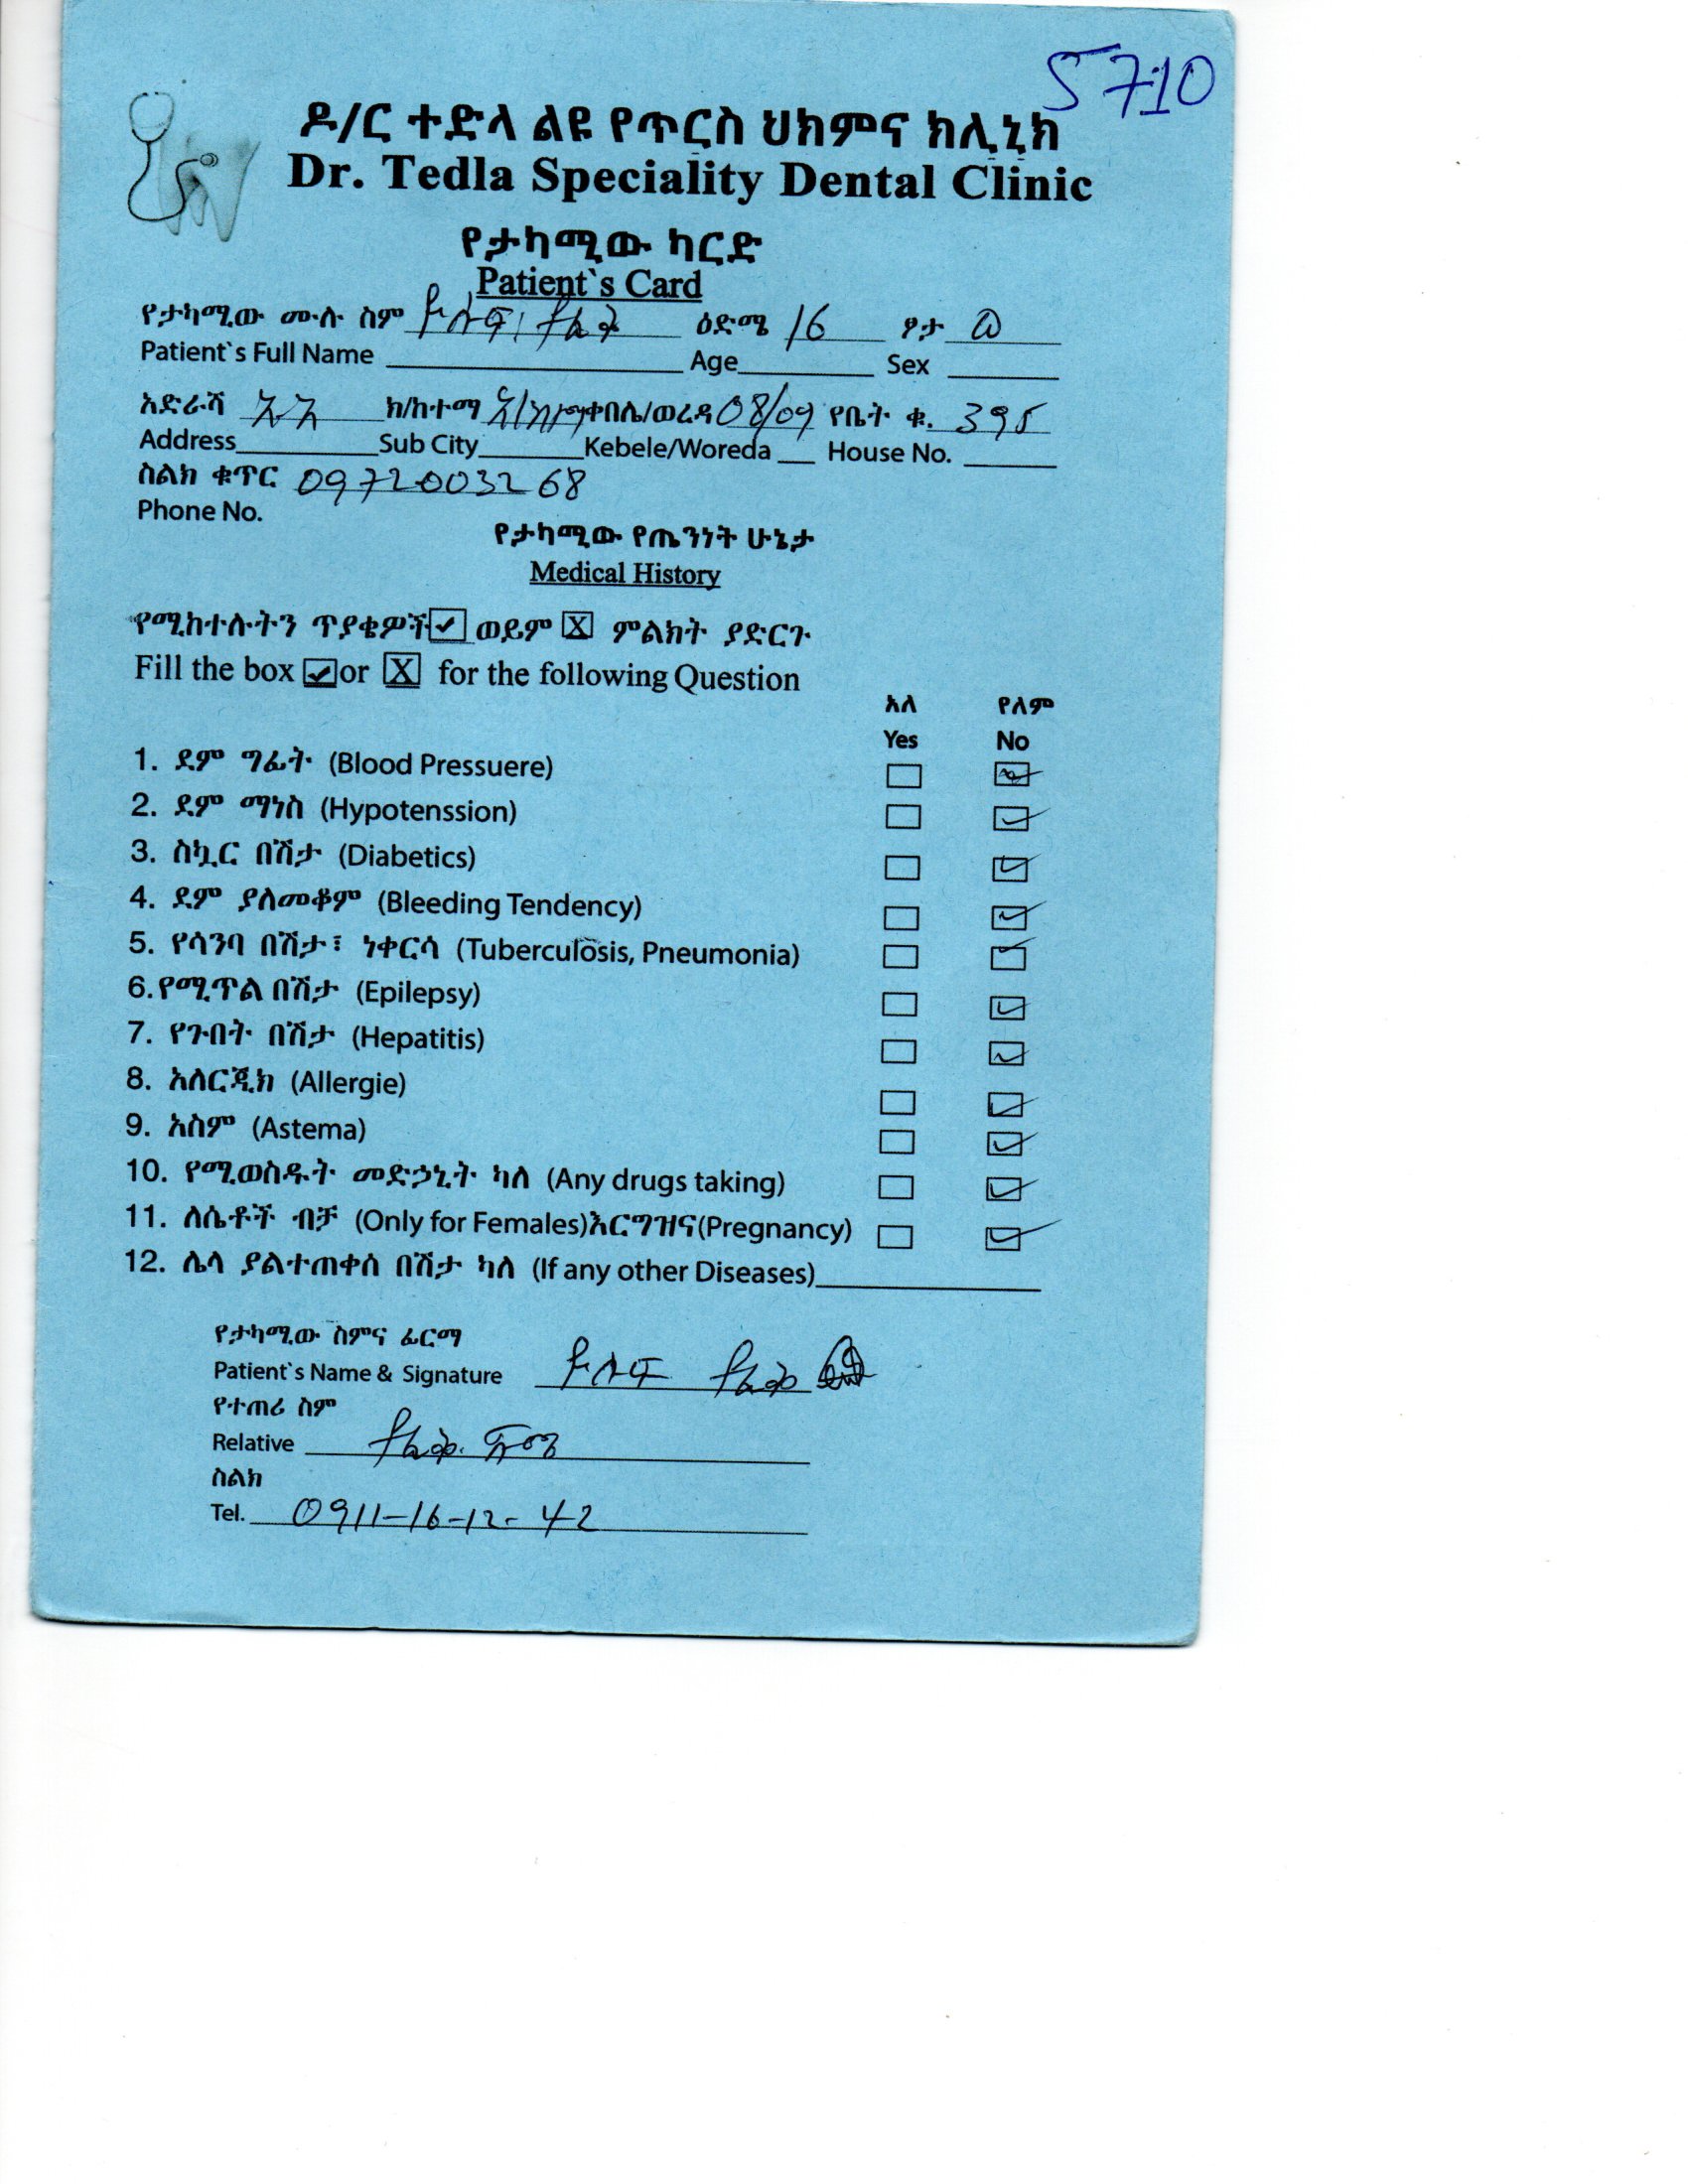 5710
ዶ/ር ተድላ ልዩ የጥርስ ህክምና ክሊኒክ
Dr. Tedla Speciality Dental Clinic
የታካሚው ካርድ
Patient`s Card
የታካሚው ሙሉ ስም ዕድሜ 16 ፆታ ወ
Patient`s Full Name Age Sex
አድራሻ አአ ክ/ከተማ ቀበሌ/ወረዳ 08/09 የቤት ቁ. 395
Address Sub City Kebele/Woreda House No.
ስልክ ቁጥር 0972003268
Phone No.
የታካሚው የጤንነት ሁኔታ
Medical History
የሚከተሉትን ጥያቄዎች ✓ ወይም X ምልክት ያድርጉ
Fill the box ✓ or X for the following Question
አለ የለም
Yes No
1. ደም ግፊት (Blood Pressuere)
2. ደም ማነስ (Hypotenssion)
3. ስኳር በሽታ (Diabetics)
4. ደም ያለመቆም (Bleeding Tendency)
5. የሳንባ በሽታ፣ ነቀርሳ (Tuberculosis, Pneumonia)
6.የሚጥል በሽታ (Epilepsy)
7. የጉበት በሽታ (Hepatitis)
8. አለርጂክ (Allergie)
9. አስም (Astema)
10. የሚወስዱት መድኃኒት ካለ (Any drugs taking)
11. ለሴቶች ብቻ (Only for Females)እርግዝና(Pregnancy)
12. ሌላ ያልተጠቀሰ በሽታ ካለ (If any other Diseases)
የታካሚው ስምና ፊርማ
Patient`s Name & Signature
የተጠሪ ስም
Relative
ስልክ
Tel. 0911-16-12-42